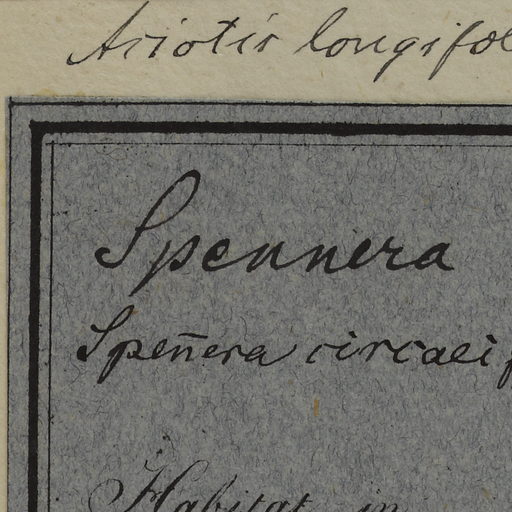 Aciotis longifol
Spennera
Speñera circaeif
Habitat in